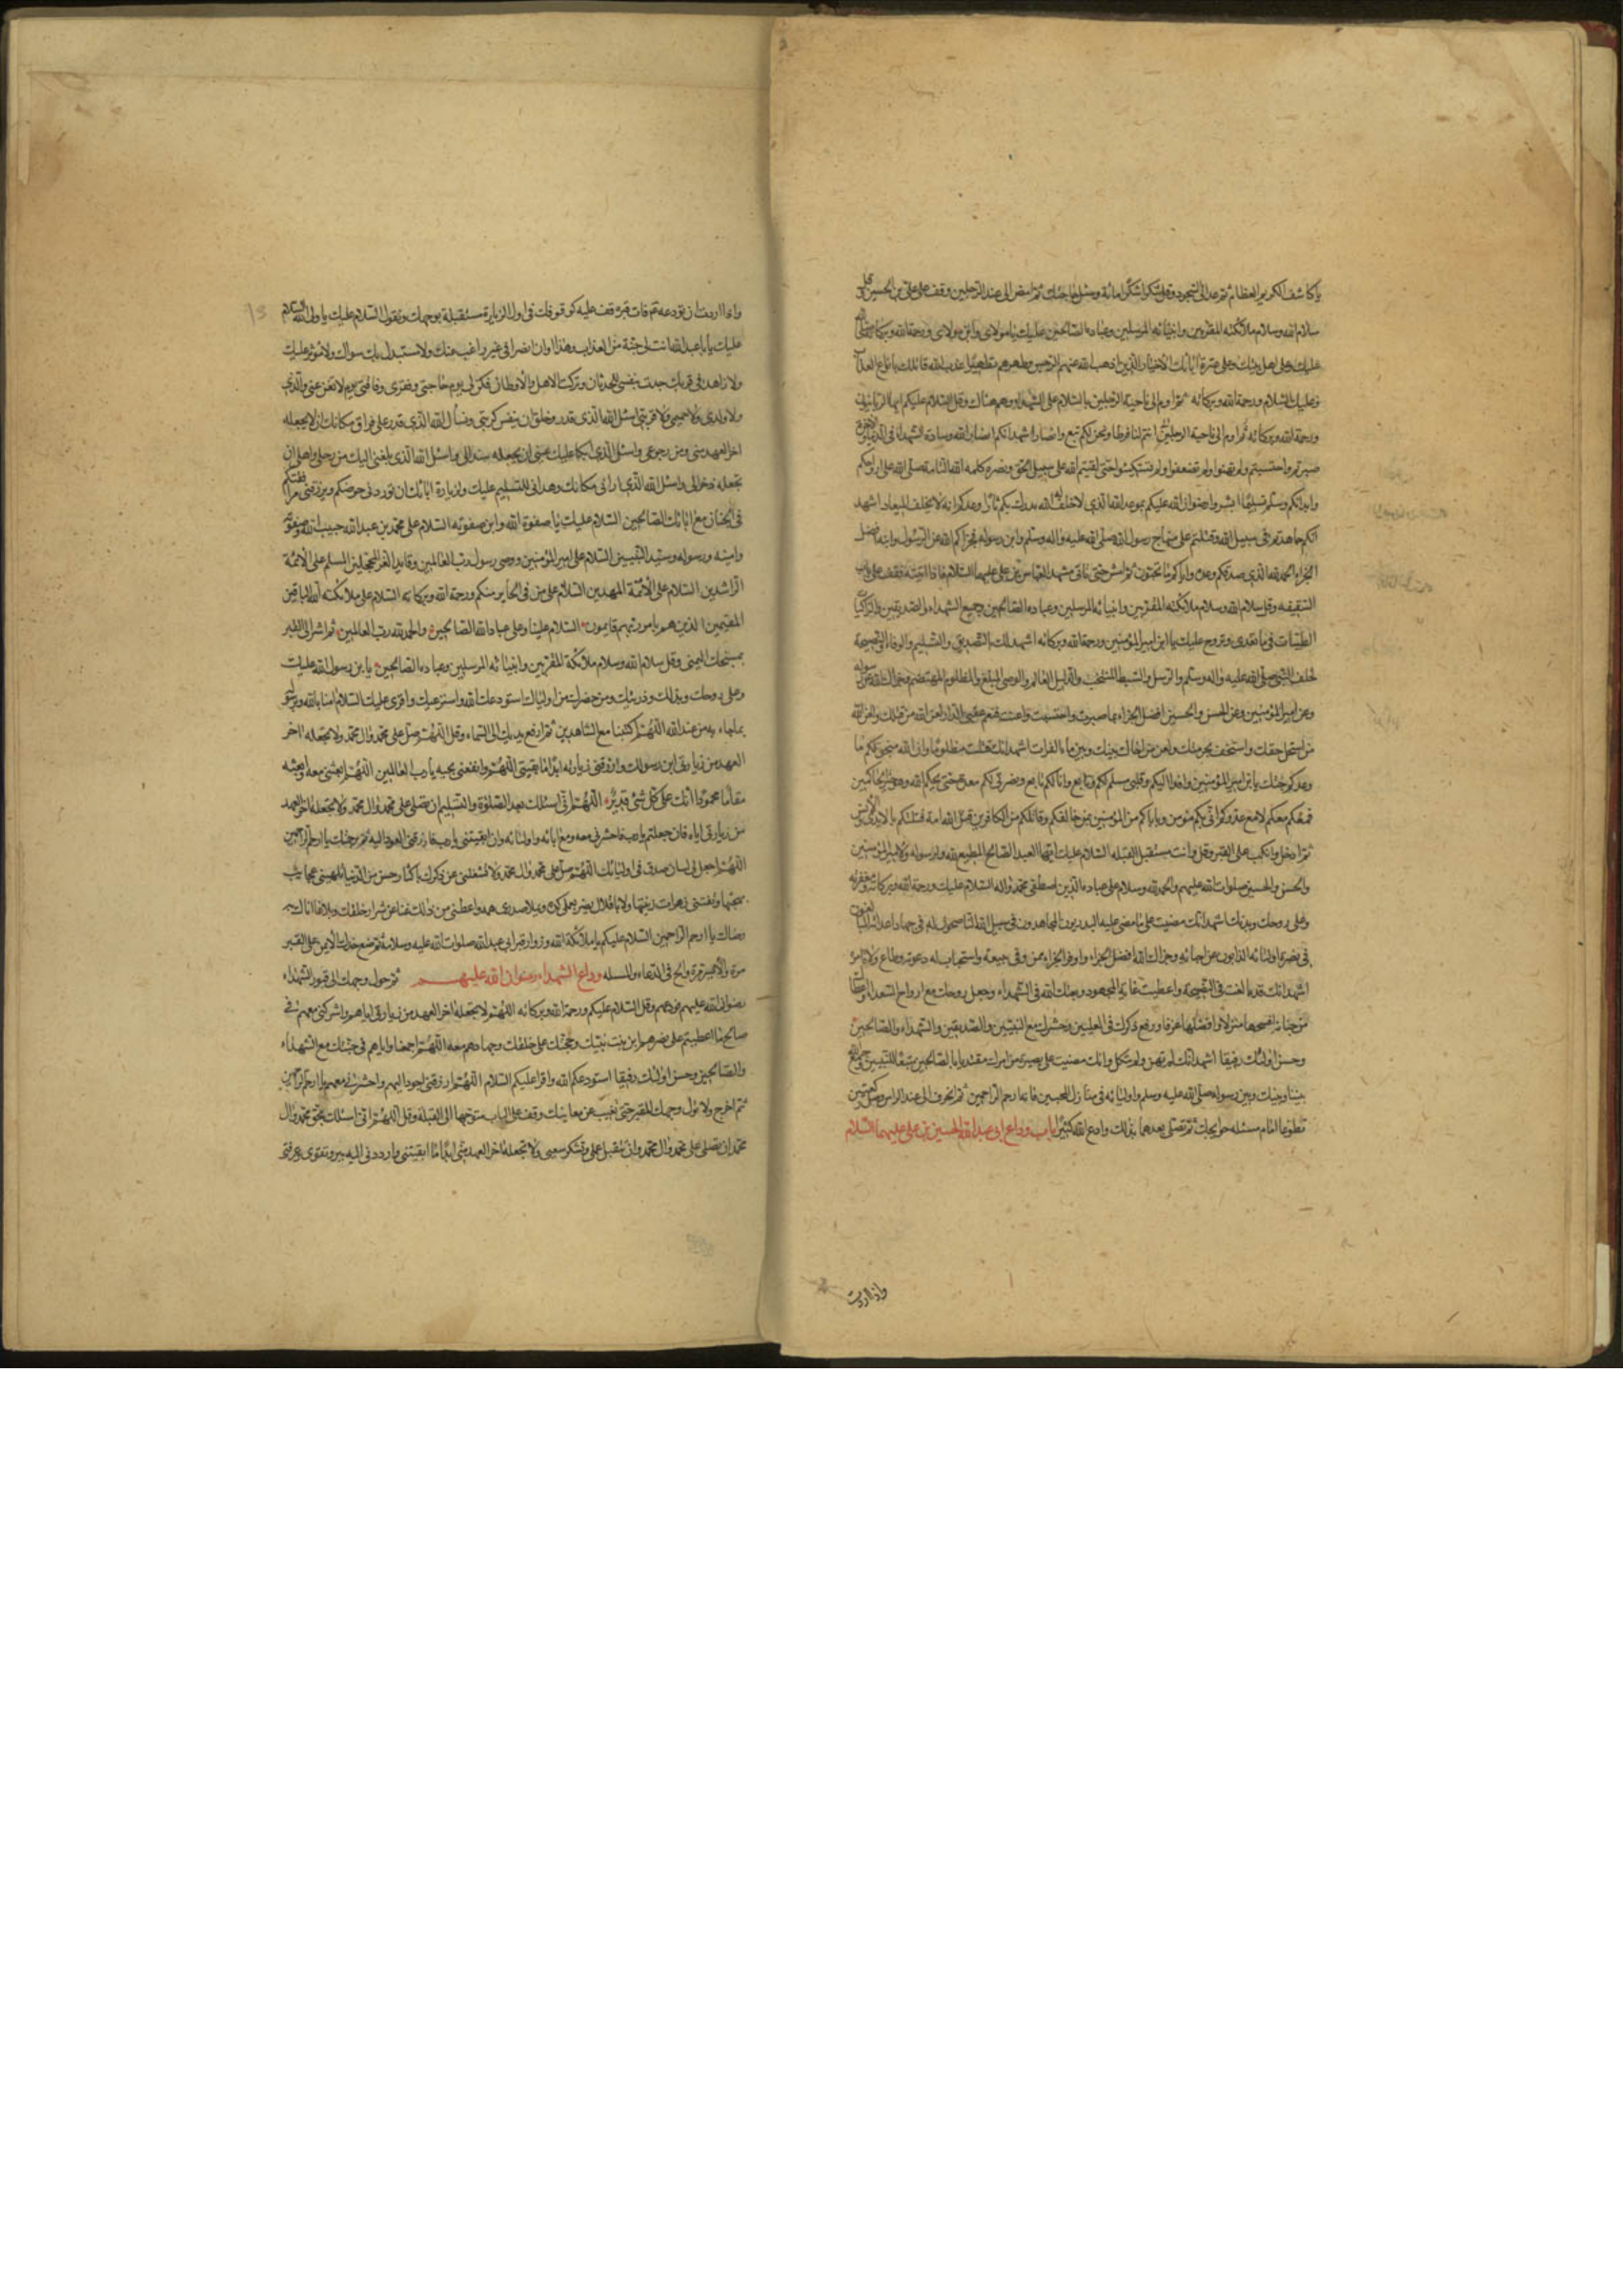 يا كاشف الكرب العظام ثم عد الى السجود وقل شكرا شكرا مائة وسل حاجتك ثم امض الى عند الرجلين وقف على علي بن الحسين وقل
سلام الله وسلام ملائكته المقربين وانبيائه المرسلين وعباده الصالحين عليك يا مولاي وابن مولاي ورحمة الله وبركاته صلى الله
عليك وعلى اهل بيتك وعلى عترة ابائك الاخيار الذين اذهب الله عنهم الرجس وطهرهم تطهيرا عذب الله قاتلك بانواع العذاب
وعليك السلام ورحمة الله وبركاته ثم اوم الى ناحية الرجلين بالسلام على الشهداء وهم هناك وقل السلام عليكم ايها الربانيون
ورحمة الله وبركاته انتم لنا فرط ونحن لكم تبع وانصار اشهد انكم انصار الله وسادة الشهداء في الدنيا والاخرة
صبرتم واحتسبتم ولم تهنوا ولم تضعفوا ولم تستكينوا حتى لقيتم الله على سبيل الحق ونصره كلمة الله التامة صلى الله على ارواحكم
وابدانكم وسلم تسليما ابشروا رضوان الله عليكم بموعد الله الذي لا خلف له الله مدرك بكم ثار ما وعدكم انه لا يخلف الميعاد اشهد
انكم جاهدتم في سبيل الله وقتلتم على منهاج رسول الله صلى الله عليه واله وسلم وابن رسوله فجزاكم الله عن الرسول وابنه افضل
الجزاء الحمد لله الذي صدقكم وعده واراكم ما تحبون ثم امش حتى تاتي مشهد العباس بن علي عليهما السلام فاذا اتيته فقف على باب
السقيفة وقل سلام الله وسلام ملائكته المقربين وانبيائه المرسلين وعباده الصالحين وجميع الشهداء والصديقين الزاكيات
الطيبات فيما تغتدي وتروح عليك يا ابن امير المؤمنين ورحمة الله وبركاته اشهد لك بالتصديق والتسليم والوفاء والنصيحة
لخلف النبي صلى الله عليه واله وسلم والمرسل والسبط المنتجب والدليل العالم والوصي المبلغ والمظلوم المهتضم فجزاك الله عن رسوله
وعن امير المؤمنين وعن الحسن والحسين افضل الجزاء بما صبرت واحتسبت واعنت فنعم عقبى الدار لعن الله من قتلك ولعن الله
من استحل حقك واستخف بحرمتك ولعن من حال بينك وبين ماء الفرات اشهد انك قتلت مظلوما وان الله منجز لكم ما
وعدكم جئتك يا ابن امير المؤمنين وافدا اليكم وقلبي مسلم لكم وتابع وانا لكم تابع ونصرتي لكم معدة حتى يحكم الله وهو خير الحاكمين
فمعكم معكم لا مع عدوكم اني بكم مؤمن وبايابكم من المؤمنين وبمن خالفكم وقاتلكم من الكافرين قتل الله امة قتلتكم بالايدي والالسن
ثم ادخل وانكب على القبر وقل وانت مستقبل القبلة السلام عليك ايها العبد الصالح المطيع لله ولرسوله ولامير المؤمنين
والحسن والحسين صلوات الله عليهم والحمد لله وسلام على عباده الذين اصطفى محمد واله السلام عليك ورحمة الله وبركاته ومغفرته
وعلى روحك وبدنك اشهد انك مضيت على ما مضى عليه البدريون المجاهدون في سبيل الله المناصحون له في جهاد اعدائه المبالغون
في نصرة اوليائه الذابون عن احبائه وجزاك الله افضل الجزاء واوفر الجزاء ممن وفى ببيعته واستجاب له دعوته وطاع ولاة امره
اشهد انك قد بالغت في النصيحة واعطيت غاية المجهود وبعثك الله في الشهداء وجعل روحك مع ارواح السعداء واعطاك
من جنانه افسحها منزلا وافضلها غرفا ورفع ذكرك في العليين وحشرك مع النبيين والصديقين والشهداء والصالحين
وحسن اولئك رفيقا اشهد انك لم تهن ولم تنكل وانك مضيت على بصيرة من امرك مقتديا بالصالحين متبعا للنبيين جمع الله
بيننا وبينك وبين رسوله صلى الله عليه وسلم واوليائه في منازل المحسنين فانه ارحم الراحمين ثم انحرف الى عند الراس وصل ركعتين
تطوعا بحوايجك ثم تصلي بعدهما بذلك وادع الله كثيرا باب وداع ابي عبد الله الحسين بن علي عليهما السلام
واذا اردت
13
واذا اردت ان تودعه فات قبره قف عليه كوقوفك في اول الزيارة مستقبله بوجهك وتقول السلام عليك يا ولي الله السلام
عليك يا ابا عبد الله انت لي جنة من العذاب وهذا اوان انصرافي غير راغب عنك ولا مستبدل بك سواك ولا مؤثر عليك
ولا زاهد في قربك جدت بنفسي للحدثان وتركت الاهل والاوطان فكن لي يوم حاجتي وفقري وفاقتي يوم لا تغن عني والدي
ولا ولدي ولا حميمي ولا قريبي اسئل الله الذي قدر وخلق ان ينفس كربتي ونسأل الله الذي قدر على فراق مكانك ان لا يجعله
اخر العهد مني ومن رجوعي واسئل الذي ابكا عليك عيني ان يجعله سندا لي واسئل الله الذي بلغني اليك من رحلي واهلي ان
يجعله ذخرا لي واسئل الله الذي اراني مكانك وهداني للتسليم عليك ولزيارة ابائك ان يوردني حوضكم ويرزقني مرافقتكم
في الجنان مع ابائك الصالحين السلام عليك يا صفوة الله وابن صفوته السلام على محمد بن عبد الله حبيب الله وصفوته
وامينه ورسوله وسيد النبيين السلام على امير المؤمنين ووصي رسول رب العالمين وقايد الغر المحجلين السلام على الائمة
الراشدين السلام على الائمة المهديين السلام على من في الحاير منكم ورحمة الله وبركاته السلام على ملائكة الله الباقين
المقيمين الذين هم بامر ربهم قايمون السلام علينا وعلى عباد الله الصالحين والحمد لله رب العالمين ثم اشر الى القبر
بمسبحتك اليمنى وقل سلام الله وسلام ملائكته المقربين وانبيائه المرسلين وعباده الصالحين يا ابن رسول الله عليك
وعلى روحك وبدنك وذريتك ومن حضرك من اوليائك استودعك الله واسترعيك واقرئ عليك السلام امنا بالله وبرسوله
بما جاء به من عند الله اللهم اكتبنا مع الشاهدين ثم ارفع يديك الى السماء وقل اللهم صل على محمد وال محمد ولا تجعله اخر
العهد من زيارتي ابن رسولك وارزقني زيارته ابدا ما بقيتني اللهم وانفعني بحبه يا رب العالمين اللهم ابعثني معه وابعثه
مقاما محمودا انك على كل شئ قدير اللهم اني اسئلك بعد الصلوة والتسليم ان تصلي على محمد وال محمد ولا تجعله اخر العهد
من زيارتي اياه فان جعلته يا رب فاحشرني معه ومع ابائه واوليائه وان ابقيتني يا رب فارزقني العود اليه ثم برحمتك يا ارحم الراحمين
اللهم اجعل لي لسان صدق في اوليائك اللهم صل على محمد وال محمد ولا تشغلني عن ذكرك باكثار من الدنيا تلهيني عجائب
بهجتها وتفتنني زهرات زينتها ولا باقلال يضر بعملي كده ويملا صدري همه واعطني من ذلك غنا عن شرار خلقك وبلاغا انال به
رضاك يا ارحم الراحمين السلام عليكم يا ملائكة الله وزوار قبر ابي عبد الله صلوات الله عليه وسلامه ثم ضع خدك الايمن على القبر
مرة والايسر مرة والح في الدعاء والمسئله وداع الشهداء رضوان الله عليهم ثم حول وجهك الى قبور الشهداء
رضوان الله عليهم فودعهم وقل السلام عليكم ورحمة الله وبركاته اللهم لا تجعله اخر العهد من زيارتي اياهم واشركني معهم في
صالح ما اعطيتهم على نصرهم ابن بنت نبيك وحجتك على خلقك وجهادهم معه اللهم اجمعنا واياهم في جنتك مع الشهداء
والصالحين وحسن اولئك رفيقا استودعكم الله واقرا عليكم السلام اللهم ارزقني العود اليهم واحشرني معهم يا ارحم الراحمين
ثم اخرج ولا تول وجهك القبر حتى تغيب عن معاينتك وقف على الباب متوجها الى القبلة وقل اللهم اني اسئلك بحق محمد وال
محمد ان تصلي على محمد وال محمد وان تتقبل عملي وتشكر سعيي ولا تجعله اخر العهد مني ابدا ما ابقيتني وارددني اليه ببر وتقوى وعرفني